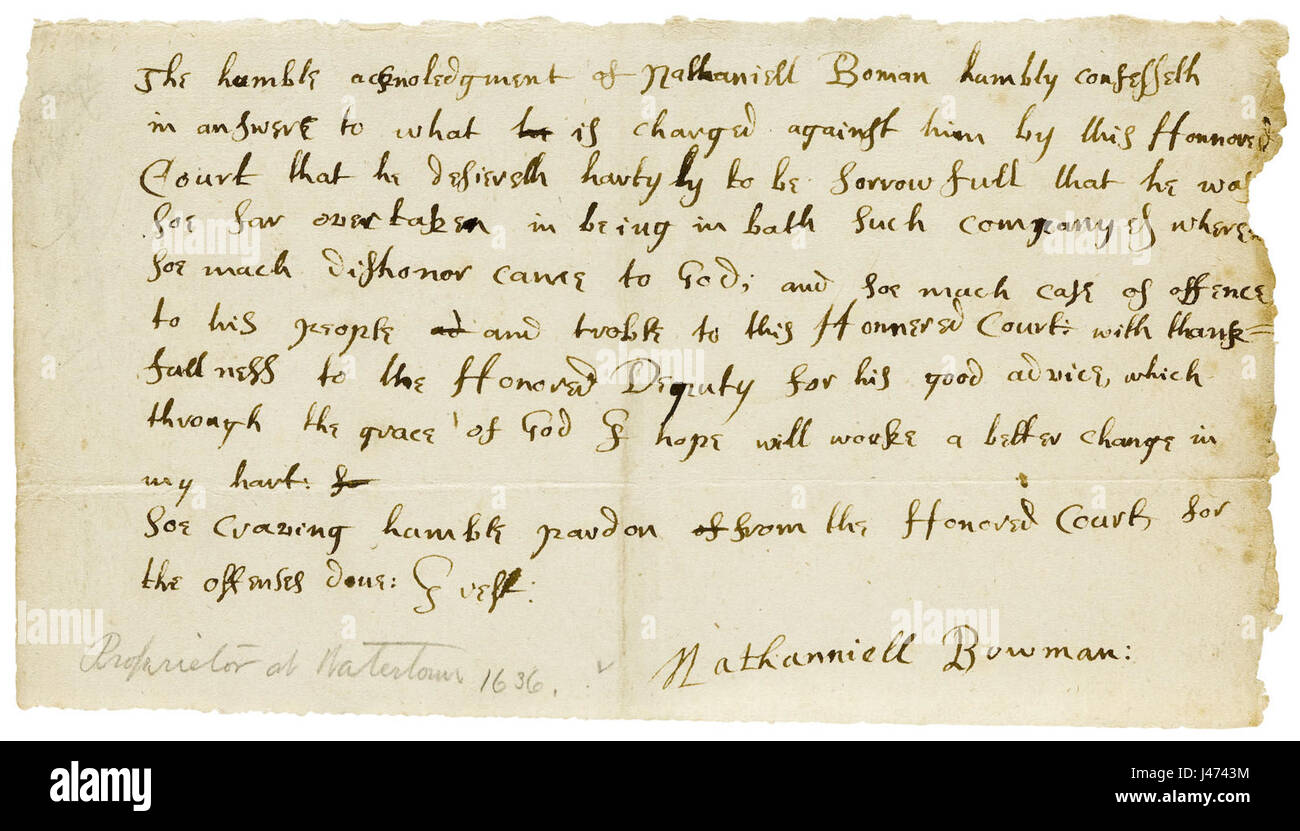 The humble acknoledgment of Nathaniell Boman humbly confesseth
in answere to what is charged against him by this Honnored
Court that he desiereth hartyly to be sorrowfull that he was
soe far overtaken in being in bath such companyes where
soe much dishonor came to God; and soe much case of offence
to his people and troble to this Honnered Court: with thank=
fullness to the Honored Deputy for his good advice, which
through the grace of God I hope will worke a better change in
my hart:
soe craving humble pardon from the Honored Court, for
the offenses done: I rest:
Nathanniell Bowman:
Proprietor at Watertown 1636.
alamy
alamy stock photo
J4743M
www.alamy.com